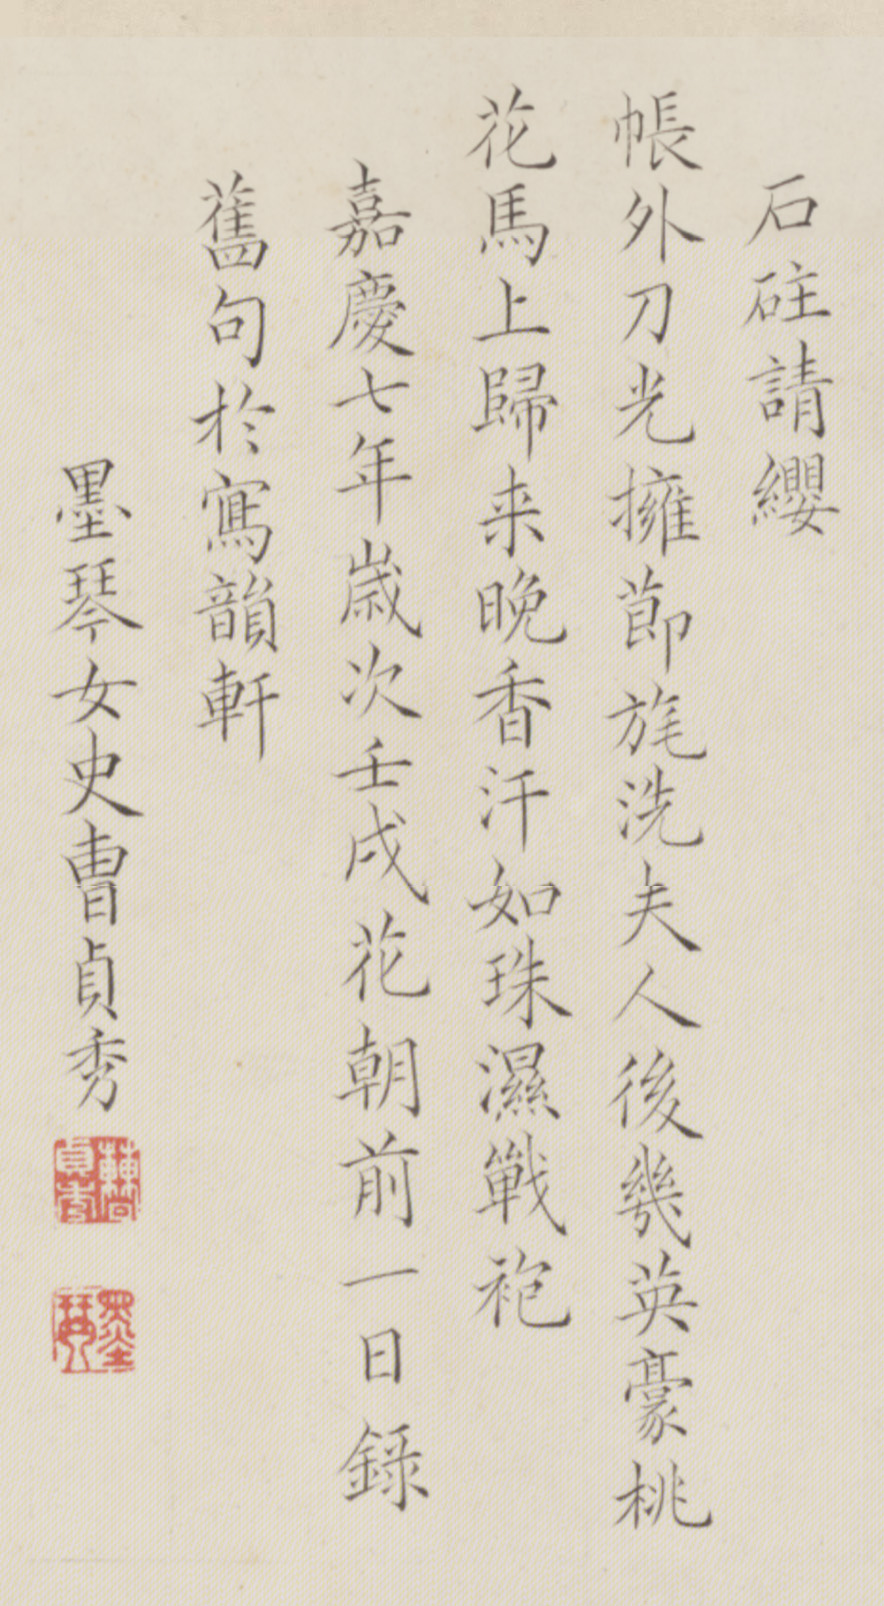 石砫請纓
帳外刀光擁節旄洗夫人後幾英豪桃
花馬上歸来晚香汗如珠濕戰袍
嘉慶七年歲次壬戌花朝前一日錄
舊句於寫韻軒
墨琴女史曹貞秀
曹貞秀
墨琴